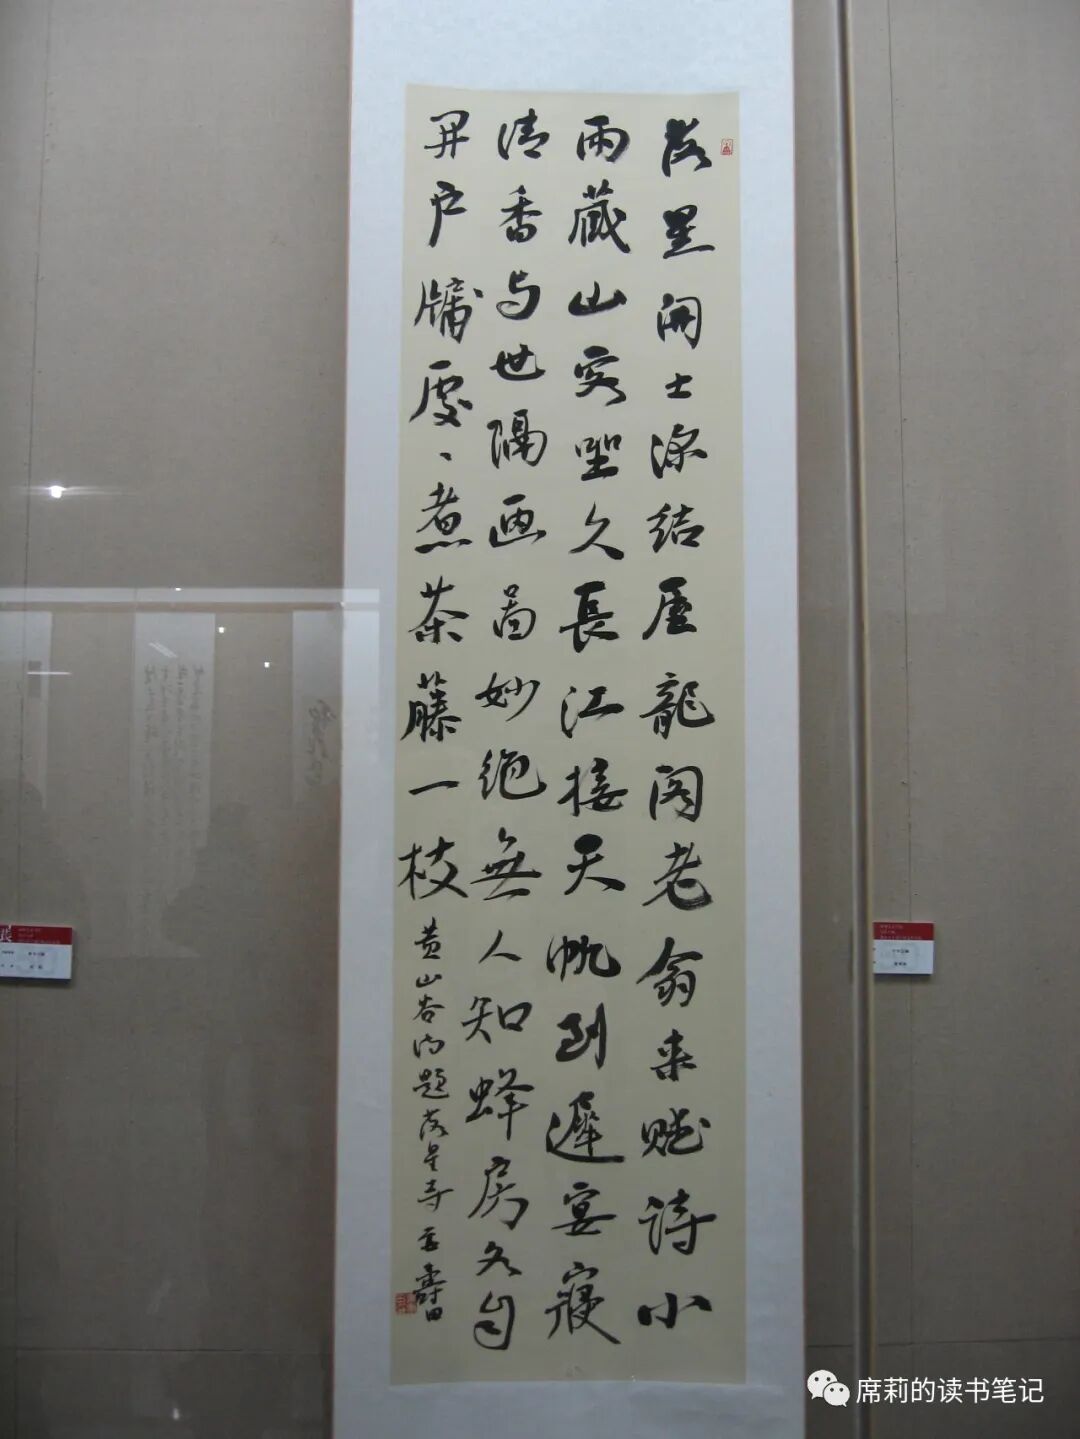 落星開士深結屋龍阁老翁来赋詩小
雨藏山客坐久長江接天帆到遲宴寢
清香与世隔画啚妙絶無人知蜂房各自
開户牖處、煮茶藤一枝
黄山谷诗題落星寺
席莉的读书笔记